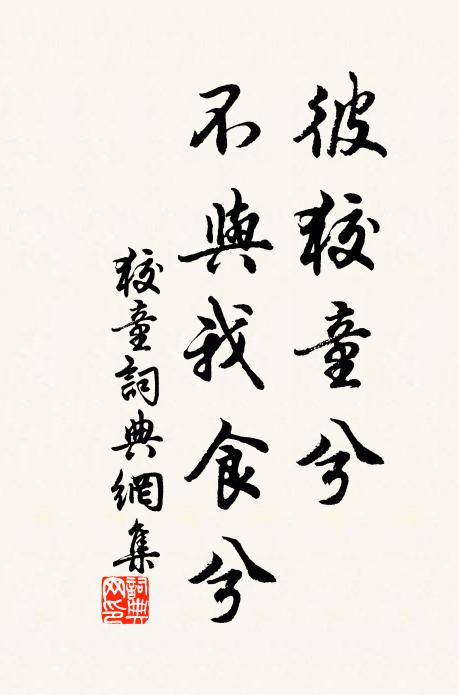 彼狡童兮
不與我食兮
狡童詞典網集
詞典网印